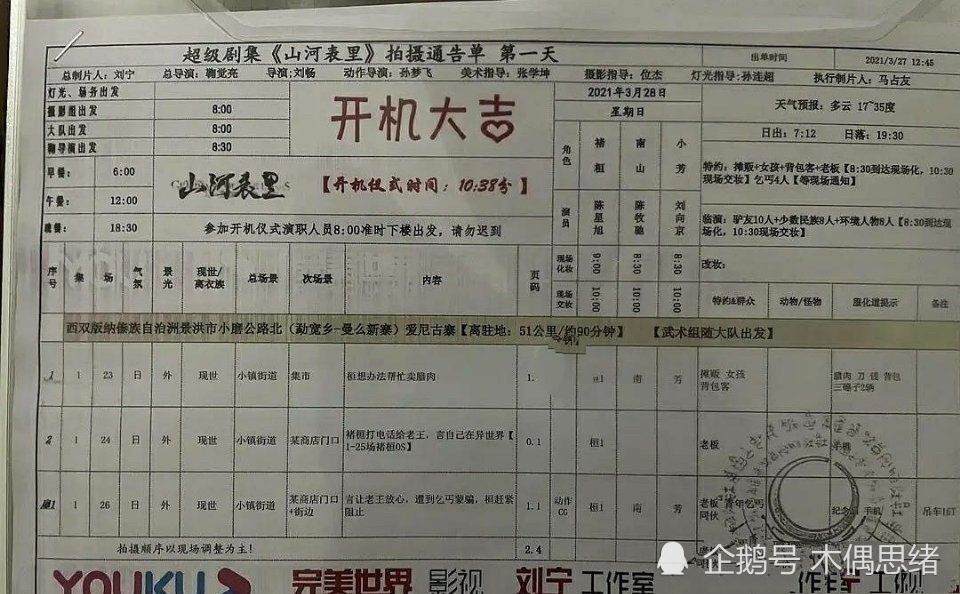 超级剧集《山河表里》拍摄通告单 第一天
出单时间 2021/3/27 12:45
总制片人：刘宁 总导演：鞠觉亮 导演：刘畅 动作导演：孙梦飞 美术指导：张学坤 摄影指导：位杰 灯光指导：孙连超 执行制片人：马占友
灯光、场务出发
摄影组出发 8:00
大队出发 8:00
鞠导演出发 8:30
开机大吉
2021年3月28日
星期日
天气预报：多云 17~35度
日出：7:12 日落：19:30
早餐： 6:00
午餐： 12:00
晚餐： 18:30
山河表里
【开机仪式时间：10:38分】
参加开机仪式演职人员8:00准时下楼出发，请勿迟到
角色 褚桓 南山 小芳
演员 陈星旭 陈牧驰 刘向京
现场化妆 9:00 8:30 8:30
现场交妆 10:00 10:00 10:00
特约：摊贩+女孩+背包客+老板【8:30到达现场化，10:30
现场交妆】乞丐4人【等现场通知】
临演：驴友10人+少数民族8人+环境人物8人【8:30到达现
场化，10:30现场交妆】
改妆：
序号 集 场 气氛 景光 现世/离衣族 总场景 次场景 内容 页码 特约&群众 动物/怪物 服化道提示 备注
西双版纳傣族自治洲景洪市小磨公路北（勐宽乡-曼么新寨）爱尼古寨【离驻地：51公里/约90分钟】 【武术组随大队出发】
1 1 23 日 外 现世 小镇街道 集市 桓想办法帮忙卖腊肉 1. 桓1 南 芳 摊贩 女孩 背包客 腊肉 刀 钱 背包 三磴子2辆
2 1 24 日 外 现世 小镇街道 某商店门口 褚桓打电话给老王，言自己在异世界【1-25场褚桓OS】 0.1 桓1 老板 手机
1 26 日 外 现世 小镇街道 某商店门口+街边 言让老王放心，遭到乞丐蒙骗，桓赶紧阻止 1.1 动作CG 桓1 南 芳 老板 青年乞丐 同伙 纪念 手机 吊车16T
拍摄顺序以现场调整为主！ 2.4
YOUKU 完美世界 影视 刘宁 工作室
企鹅号 木偶思绪